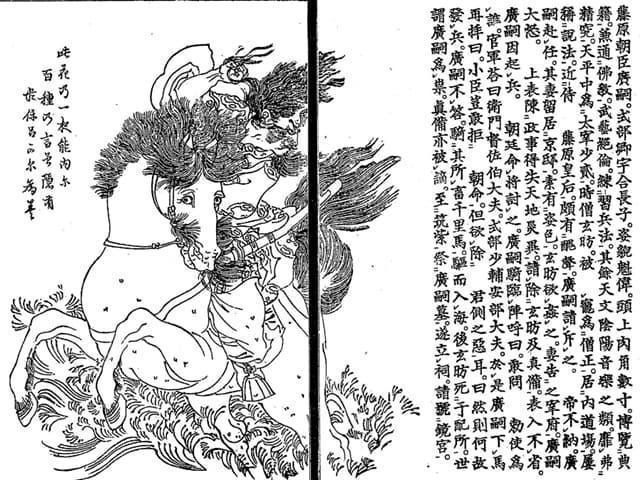 藤原朝臣廣嗣。式部卿宇合長子。姿貌魁偉。頭上肉角數寸。博覽典
籍。兼通佛教。武藝絕倫。練習兵法。其餘天文陰陽音樂之類。靡弗
精究。天平中爲太宰少貳。時僧玄昉。被 寵爲僧正。居内道場。屢
稱說法。近侍 藤原皇后。頗有醜聲。廣嗣請斥之。 帝不納。廣
嗣赴任。其妻留居京邸。素有姿色。玄昉欲姦之。妻告之宰府。廣嗣
大怒。 上表陳政事得失天地災異。請除玄昉及眞備。表入不省。
廣嗣因起兵。 朝廷命將討之。廣嗣騎臨陣呼曰。敢問 勅使爲
誰。官軍答曰衛門督佐伯大夫。式部少輔安部大夫。於是廣嗣下馬
再拜曰。小臣豈敢拒 朝命。但欲除 君側之惡耳。曰然則何故
發兵。廣嗣不答。騎其所畜千里馬。驅而入海。後玄昉死于配所。世
謂廣嗣爲祟。眞備亦被謫。至筑紫。祭廣嗣墓。遂立祠。請號鏡宮。
此花乃一 能内尓
百種乃言曽隠有
於保呂可尓為莫